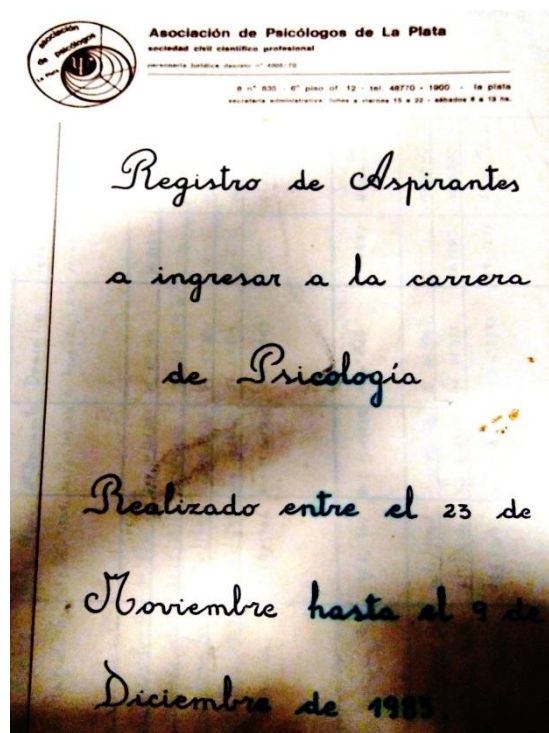 asociación
de psicólogos
La Plata
Asociación de Psicólogos de La Plata
sociedad civil científico profesional
personería jurídica decreto nº 4005/70
8 nº 835 - 6º piso of. 12 - tel. 48770 - 1900 - la plata
secretaría administrativa: lunes a viernes 15 a 22 - sábados 8 a 13 hs.
Registro de Aspirantes
a ingresar a la carrera
de Psicología
Realizado entre el 23 de
Noviembre hasta el 9 de
Diciembre de 1983.